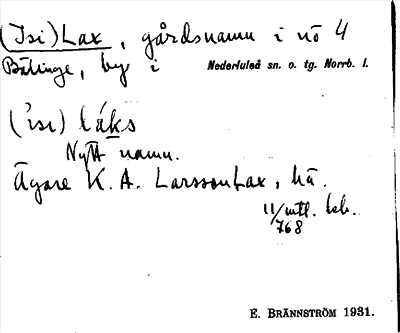 (Isi)Lax, gårdsnamn i nö 4
Bälinge, by i Nederluleå sn. o. tg. Norrb. l.
(ˈisi) láks
Nytt namn.
Ägare K. A. Larsson Lax, hä.
11/mtl. lsb.
768
E. BRÄNNSTRÖM 1931.